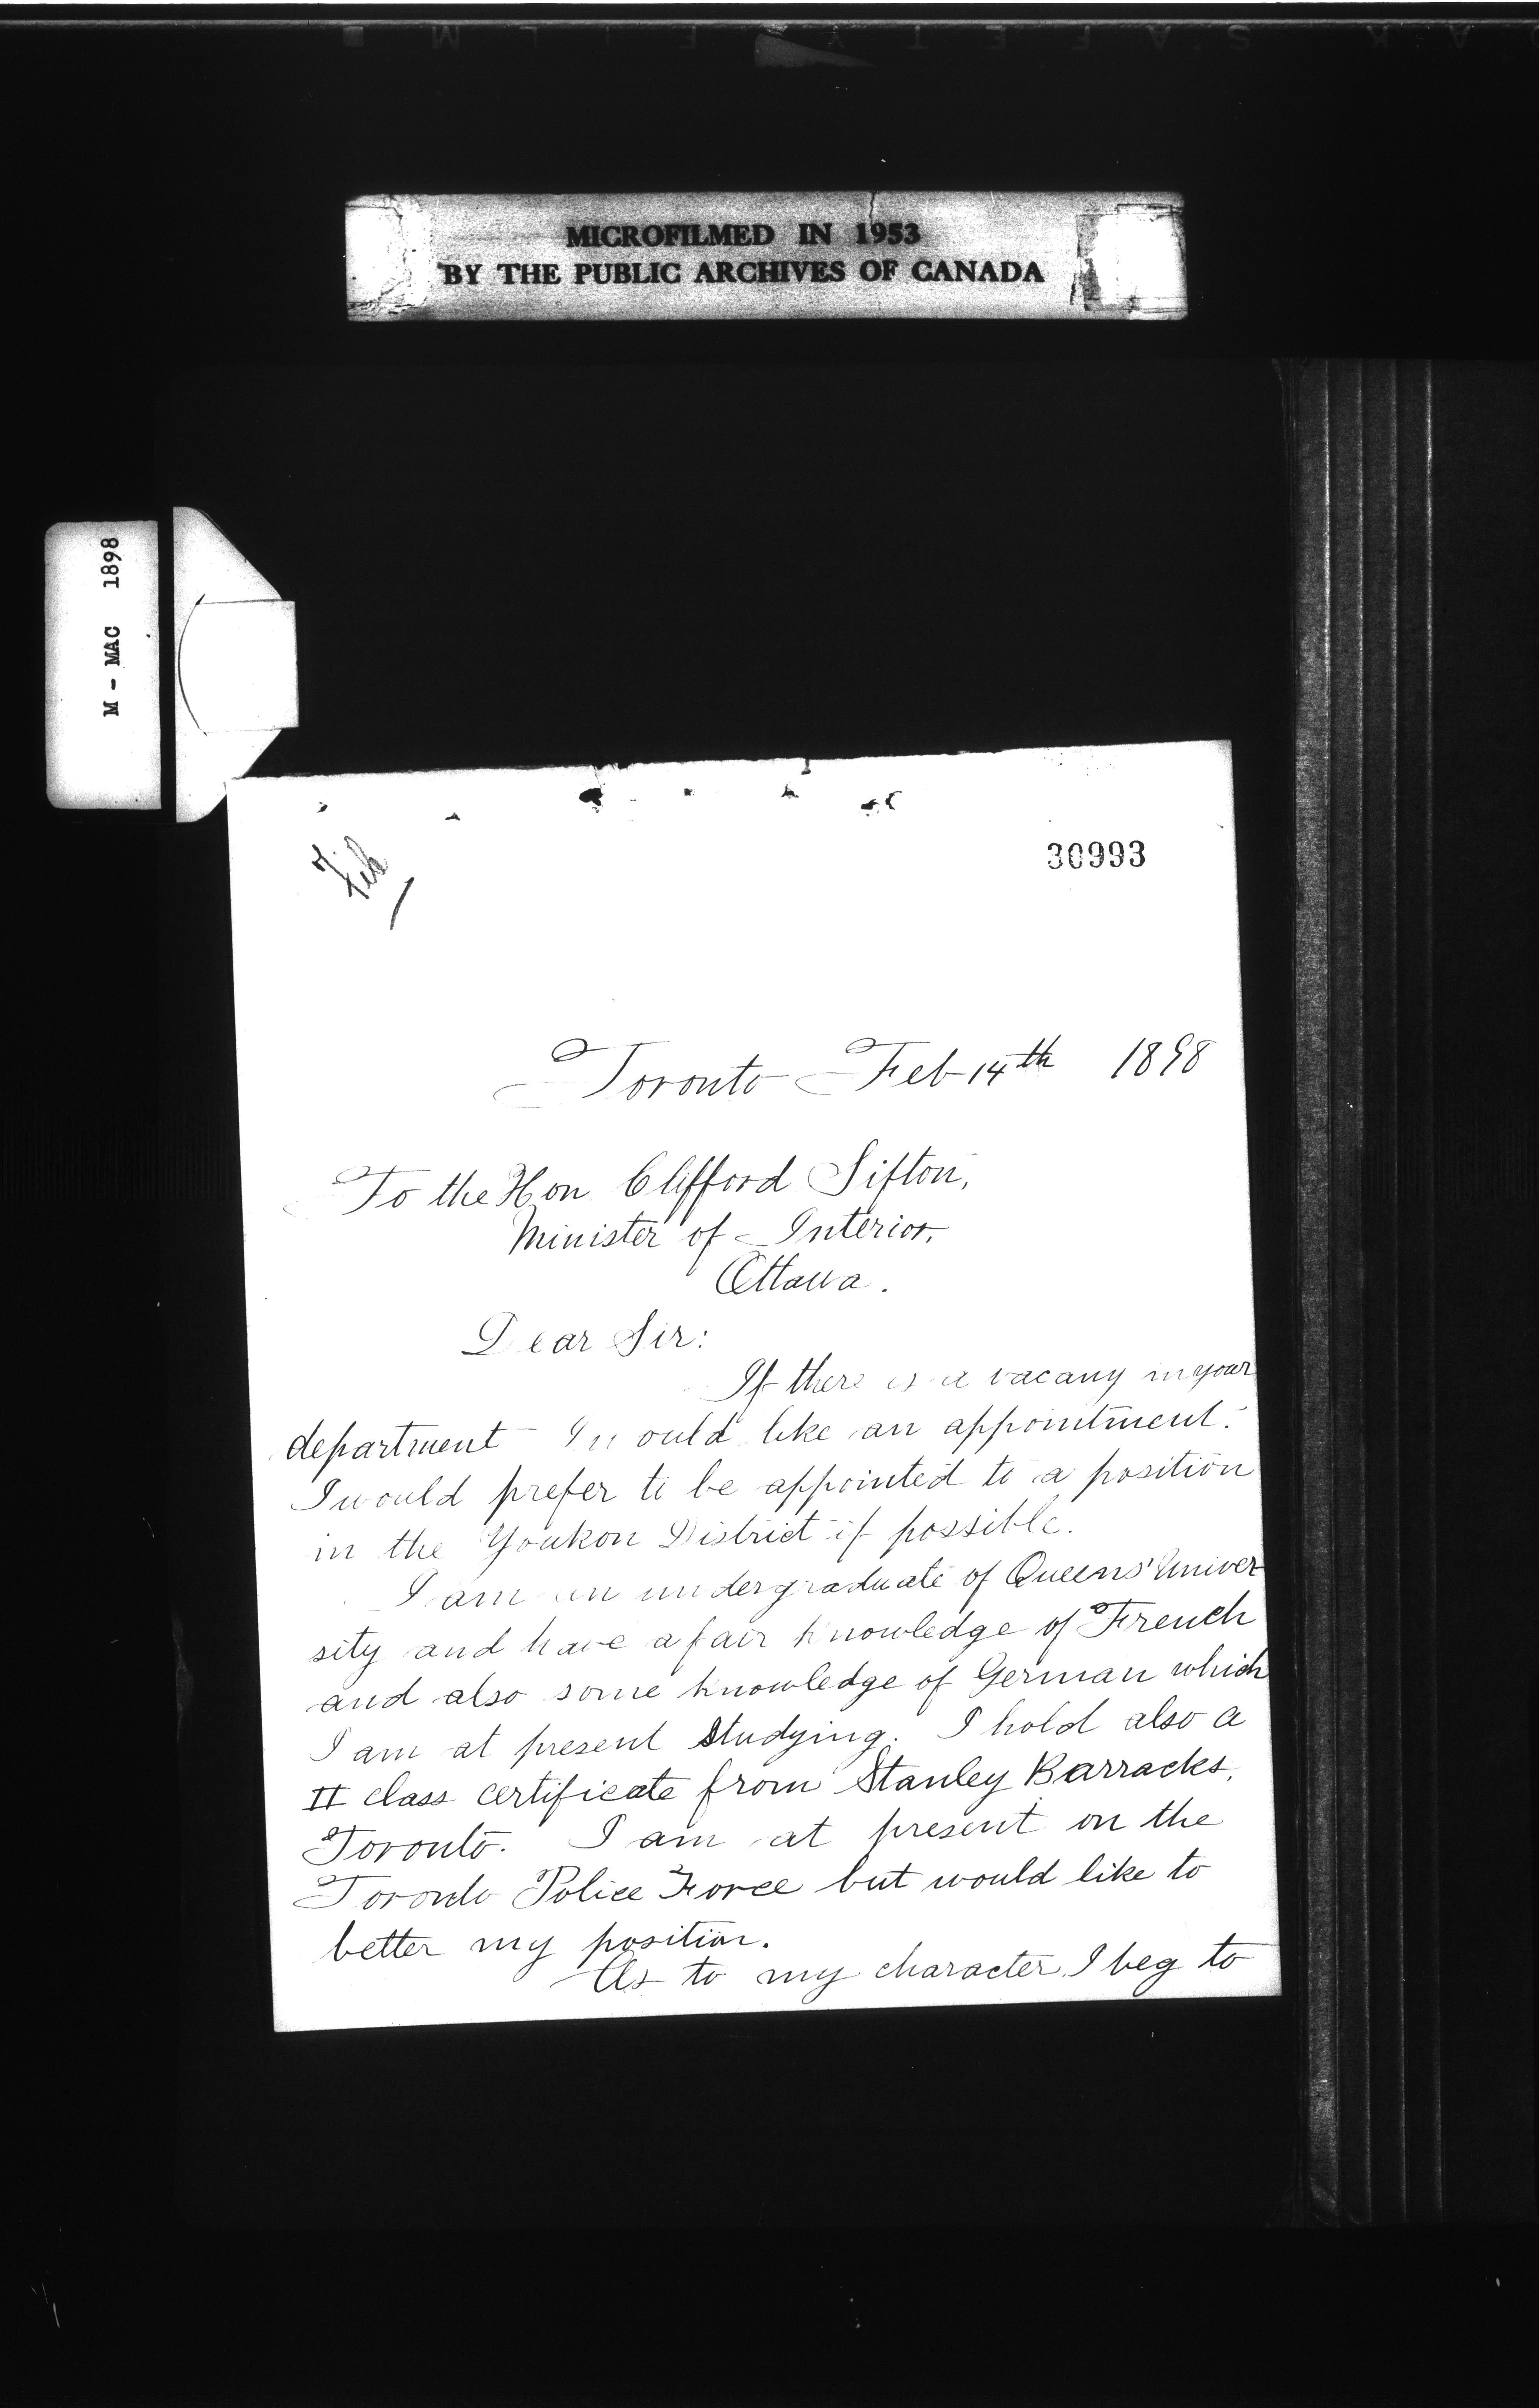 MICROFILMED IN 1953
BY THE PUBLIC ARCHIVES OF CANADA
M - MAC 1898
30993
Toronto Feb 14th 1898
To the Hon Clifford Sifton,
Minister of Interior,
Ottawa.
Dear Sir:
If there is a vacany in your
department I would like an appointment.
I would prefer to be appointed to a position
in the Youkon District if possible.
I am an undergraduate of Queens' Univer
sity and have a fair knowledge of French
and also some knowledge of German which
I am at present studying. I hold also a
II class certificate from Stanley Barracks,
Toronto. I am at present on the
Toronto Police Force but would like to
better my position.
As to my character I beg to